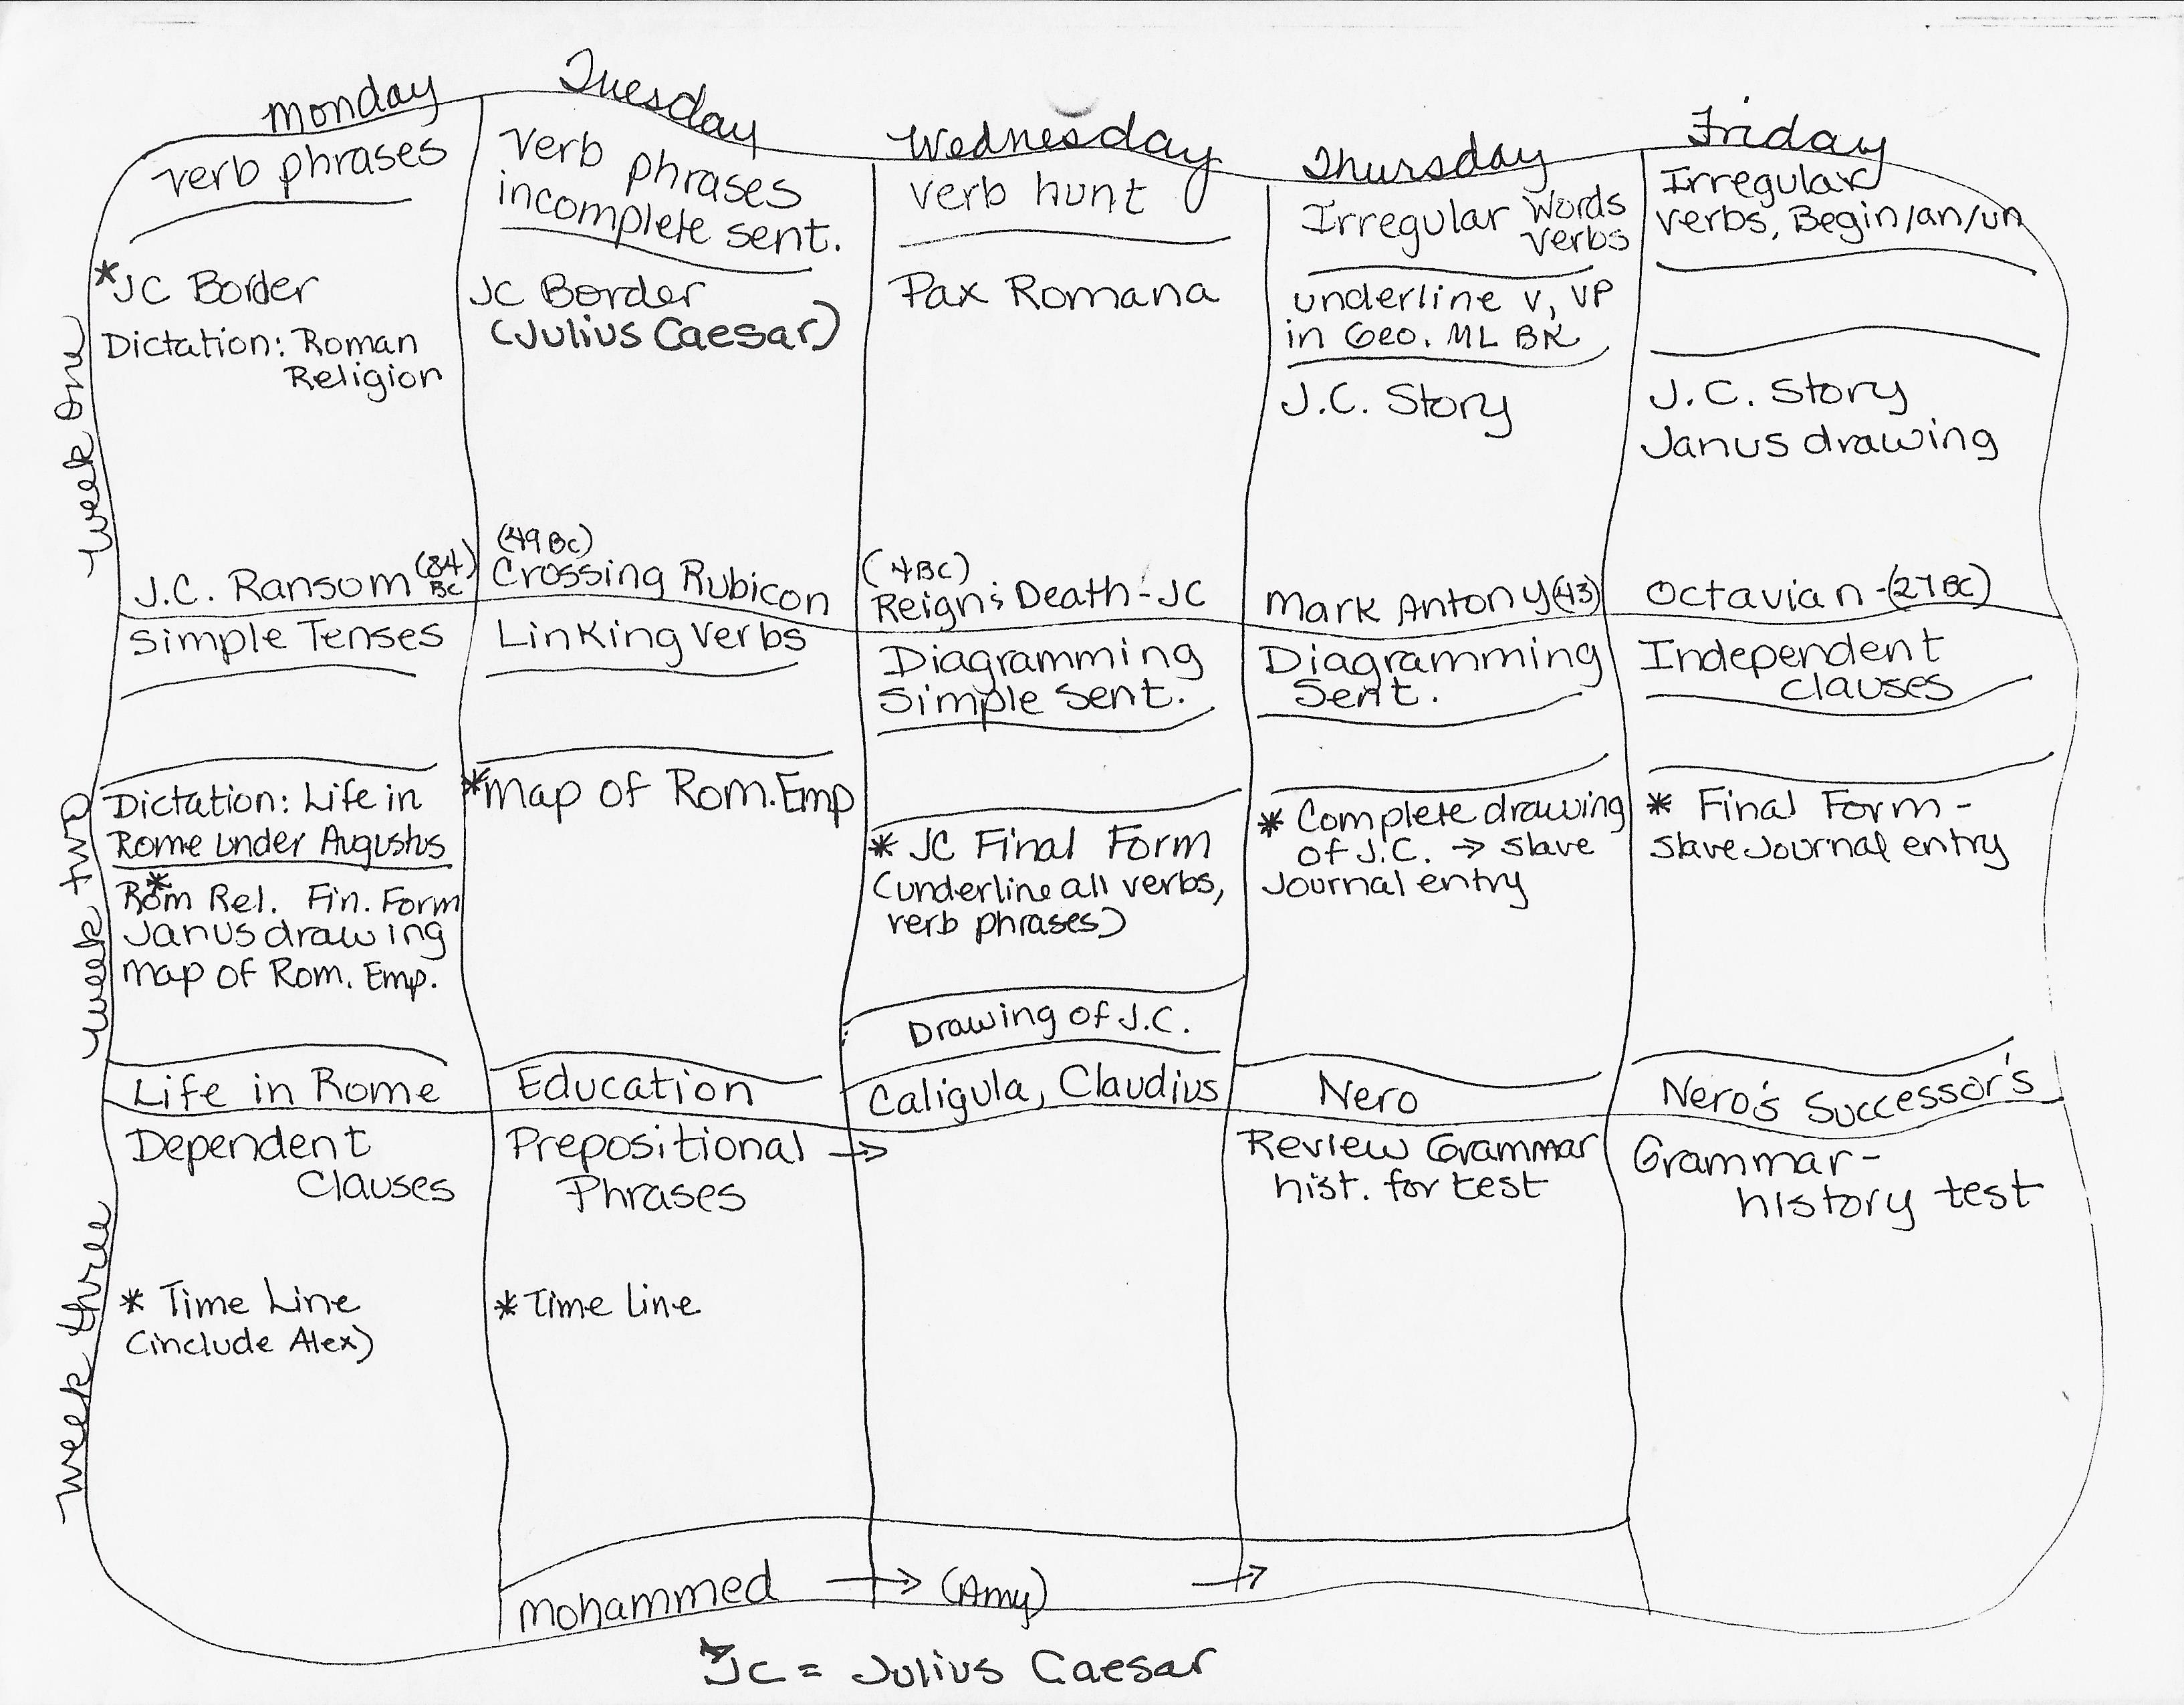 Monday
Tuesday
Wednesday
Thursday
Friday
week one
Verb phrases
*JC Border
Dictation: Roman
Religion
J.C. Ransom (84)
BC
Verb phrases
incomplete sent.
JC Border
(Julius Caesar)
(49 BC)
Crossing Rubicon
Verb hunt
Pax Romana
(4BC)
Reign; Death-JC
Irregular Words
Verbs
underline V, VP
in Geo. ML BK
J.C. Story
Mark Antony(43)
Irregular
Verbs, Begin/an/un
J.C. Story
Janus drawing
Octavian-(27BC)
week two
Simple Tenses
Dictation: Life in
Rome under Augustus
*
Rom Rel. Fin. Form
Janus drawing
Map of Rom. Emp.
Life in Rome
Linking Verbs
*Map of Rom. Emp
Education
Diagramming
Simple Sent.
* JC Final Form
(underline all verbs,
verb phrases)
Drawing of J.C.
Caligula, Claudius
Diagramming
Sent.
* Complete drawing
of J.C. → Slave
Journal entry
Nero
Independent
Clauses
* Final Form -
Slave Journal entry
Nero's Successor's
week three
Dependent
Clauses
* Time Line
(include Alex)
Prepositional →
Phrases
* Time line
Review Grammar
hist. for test
Grammar-
history test
Mohammed → (Amy) →
*JC = Julius Caesar